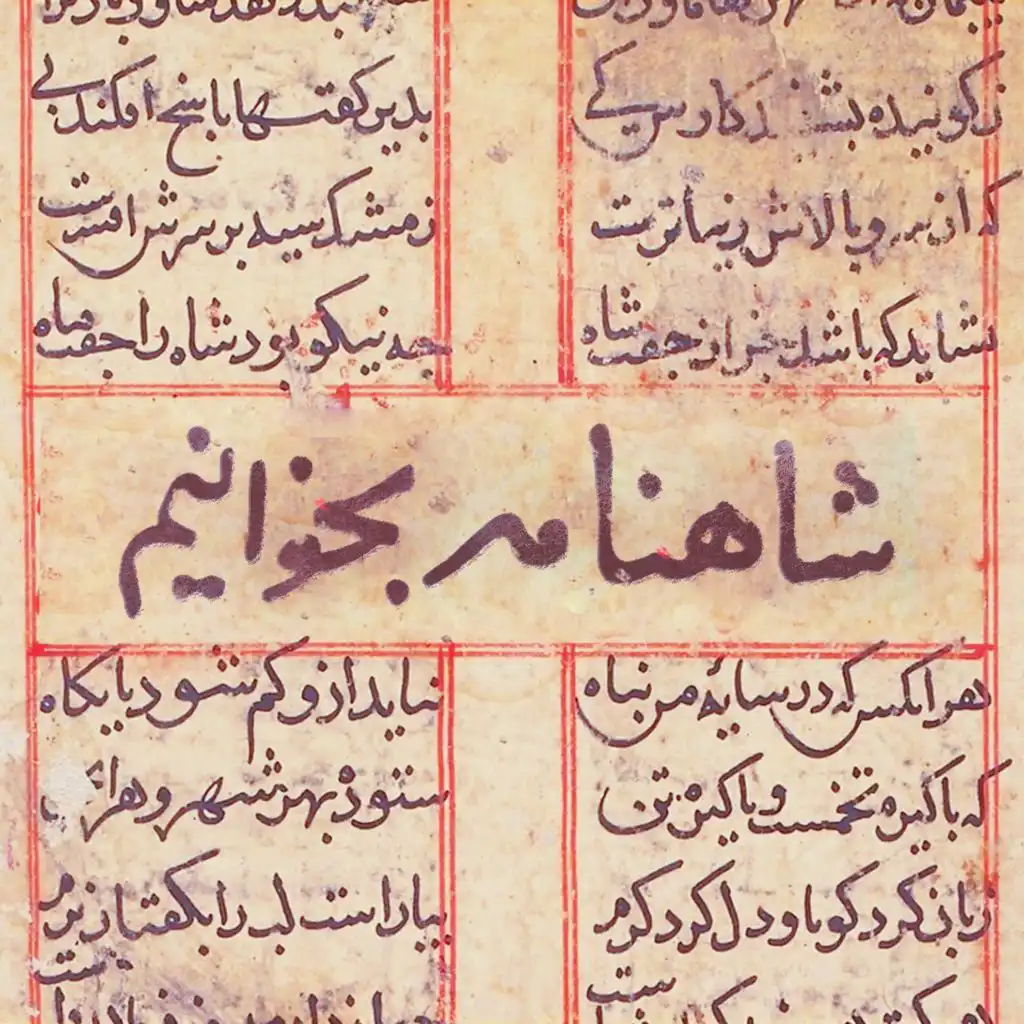 ز کوینده بشنید کاوس کی بدین کفتها باسخ افکند بی
که از سرو بالاش زیباترست ز مشک سیه بر سرش افسرست
نشاید که باشد جز از جفت شاه جه نیکو بود شاه را جفت ماه
شاهنامه بخوانیم
هر انکس که در سایهٔ من بناه نیابد ازو کم شود بایکاه
که باکیزه تخمست و باکیزه تن ستوده بهر شهر و هر
زبان کرد کویا و دل کرد کرم بیاراست لب را بکفتار نرم